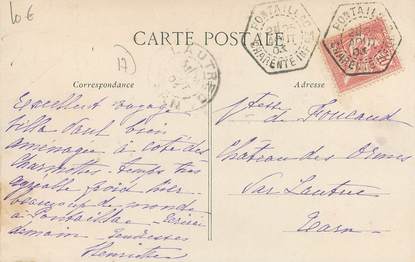 10 €
17
CARTE POSTALE
PONTAILLAC
CHARENTE INF
PONTAILLAC
CHARENTE INF
LAUTREC
Correspondance
Adresse
Excellent voyage
Villa Tout bien
aménagée à coté des
Charmettes - temps très
agréable froid hier
beaucoup de monde
à Pontaillac - écrirai
demain - Tendresses
Henriette
Vtesse de Foucaud
Château des Ormes
Par Lautrec
Tarn